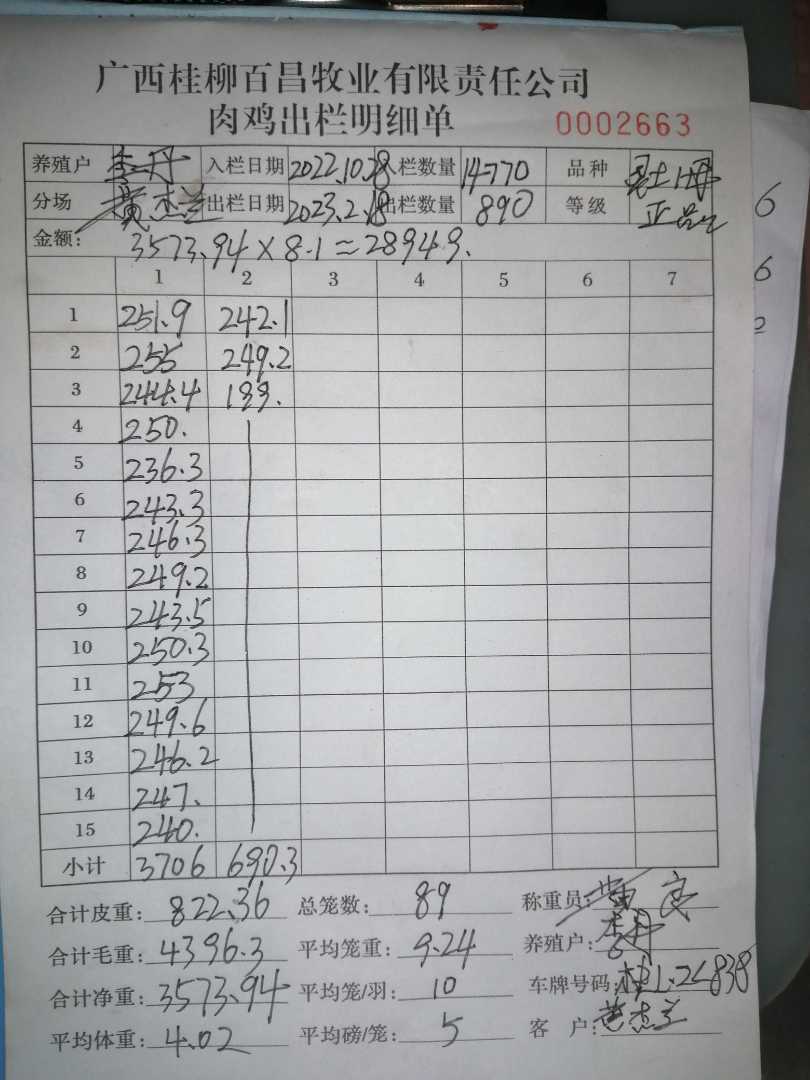 广西桂柳百昌牧业有限责任公司
肉鸡出栏明细单 0002663
养殖户 李丹 入栏日期 2022.10.28 入栏数量 14770 品种
分场 黄杰兰 出栏日期 2023.2.18 出栏数量 890 等级 正品
金额: 3573.94×8.1≈28949.
1 2 3 4 5 6 7
1 251.9 242.1
2 255 249.2
3 244.4 199.
4 250.
5 236.3
6 243.3
7 246.3
8 249.2
9 243.5
10 250.3
11 253
12 249.6
13 246.2
14 247.
15 240.
小计 3706 690.3
合计皮重: 822.36 总笼数: 89 称重员:
合计毛重: 4396.3 平均笼重: 9.24 养殖户: 李丹
合计净重: 3573.94 平均笼/羽: 10 车牌号码:
平均体重: 4.02 平均磅/笼: 5 客 户: 黄杰兰